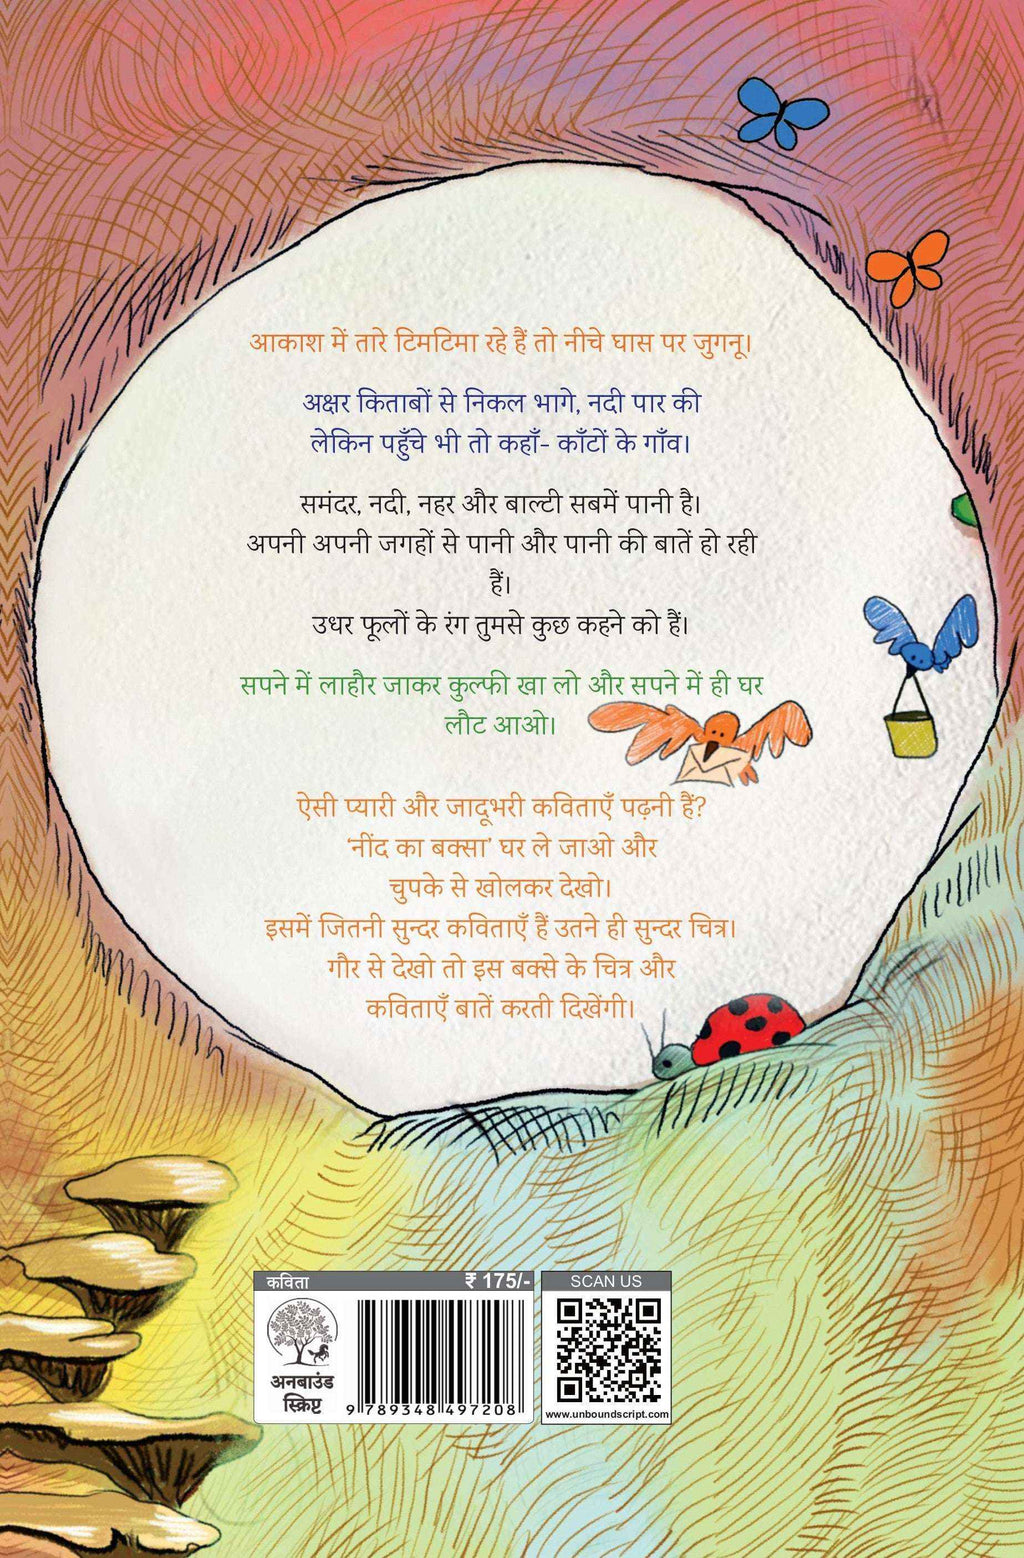 आकाश में तारे टिमटिमा रहे हैं तो नीचे घास पर जुगनू।
अक्षर किताबों से निकल भागे, नदी पार की
लेकिन पहुँचे भी तो कहाँ- काँटों के गाँव।
समंदर, नदी, नहर और बाल्टी सबमें पानी है।
अपनी अपनी जगहों से पानी और पानी की बातें हो रही
हैं।
उधर फूलों के रंग तुमसे कुछ कहने को हैं।
सपने में लाहौर जाकर कुल्फी खा लो और सपने में ही घर
लौट आओ।
ऐसी प्यारी और जादूभरी कविताएँ पढ़नी हैं?
‘नींद का बक्सा’ घर ले जाओ और
चुपके से खोलकर देखो।
इसमें जितनी सुन्दर कविताएँ हैं उतने ही सुन्दर चित्र।
गौर से देखो तो इस बक्से के चित्र और
कविताएँ बातें करती दिखेंगी।
कविता ₹ 175/-
अनबाउंड
स्क्रिप्ट
9 789348 497208
SCAN US
www.unboundscript.com